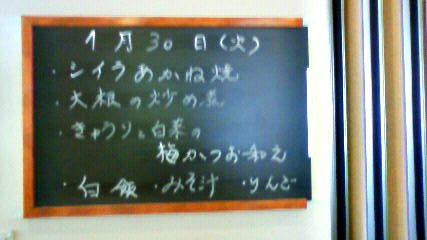 1月30日(火)
・シイラあかね焼
・大根の炒め煮
・きゅうりと白菜の
梅かつお和え
・白飯・みそ汁・りんご